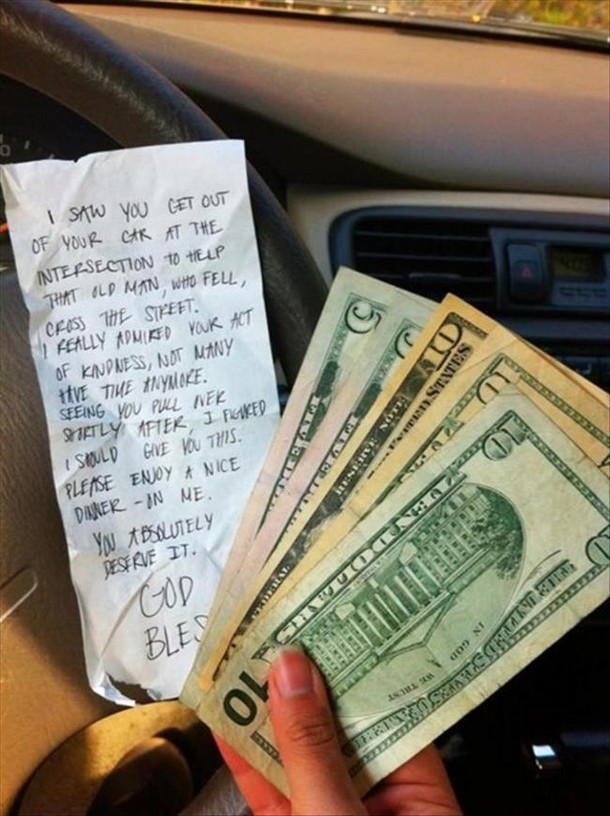 I SAW YOU GET OUT
OF YOUR CAR AT THE
INTERSECTION TO HELP
THAT OLD MAN, WHO FELL,
CROSS THE STREET.
I REALLY ADMIRED YOUR ACT
OF KINDNESS, NOT MANY
HAVE TIME ANYMORE.
SEEING YOU PULL OVER
SHORTLY AFTER, I FIGURED
I SHOULD GIVE YOU THIS.
PLEASE ENJOY A NICE
DINNER - ON ME.
YOU ABSOLUTELY
DESERVE IT.
GOD
BLES
5
10
FEDERAL RESERVE NOTE
STATES
10
10
THE UNITED STATES OF AMERICA
IN GOD
WE TRUST
10